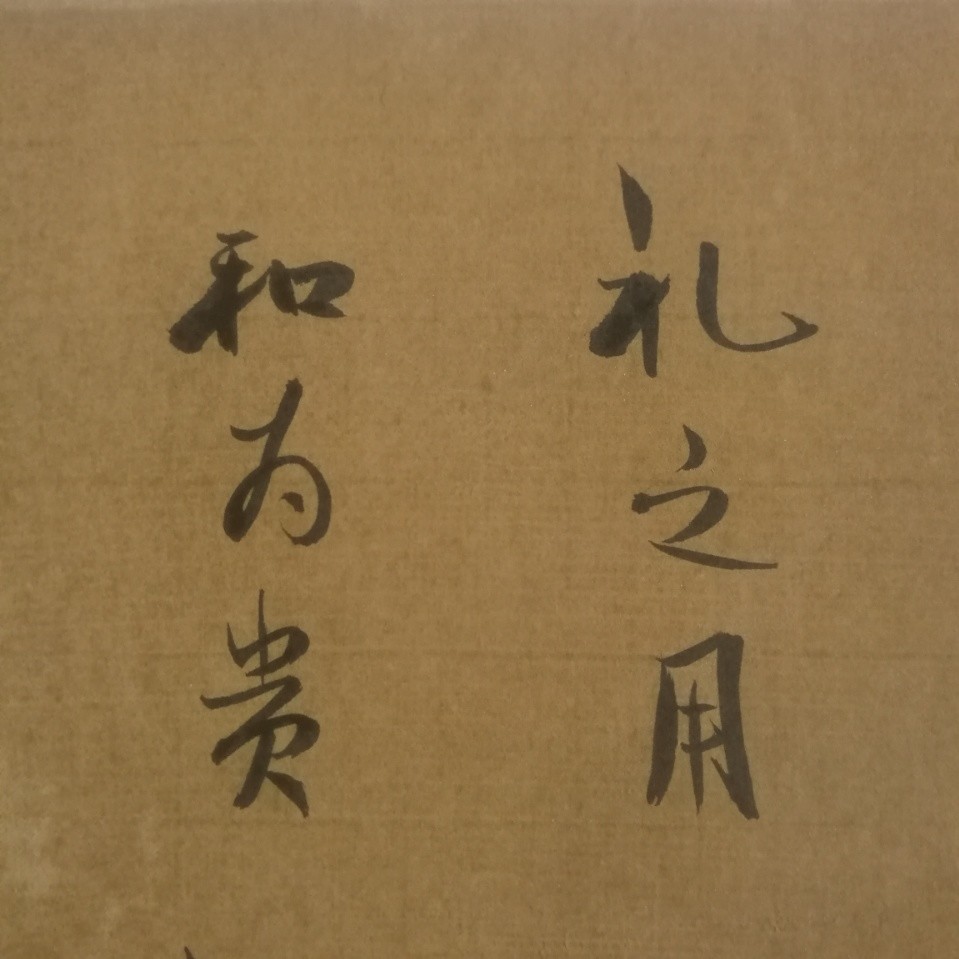 礼之用
和为贵